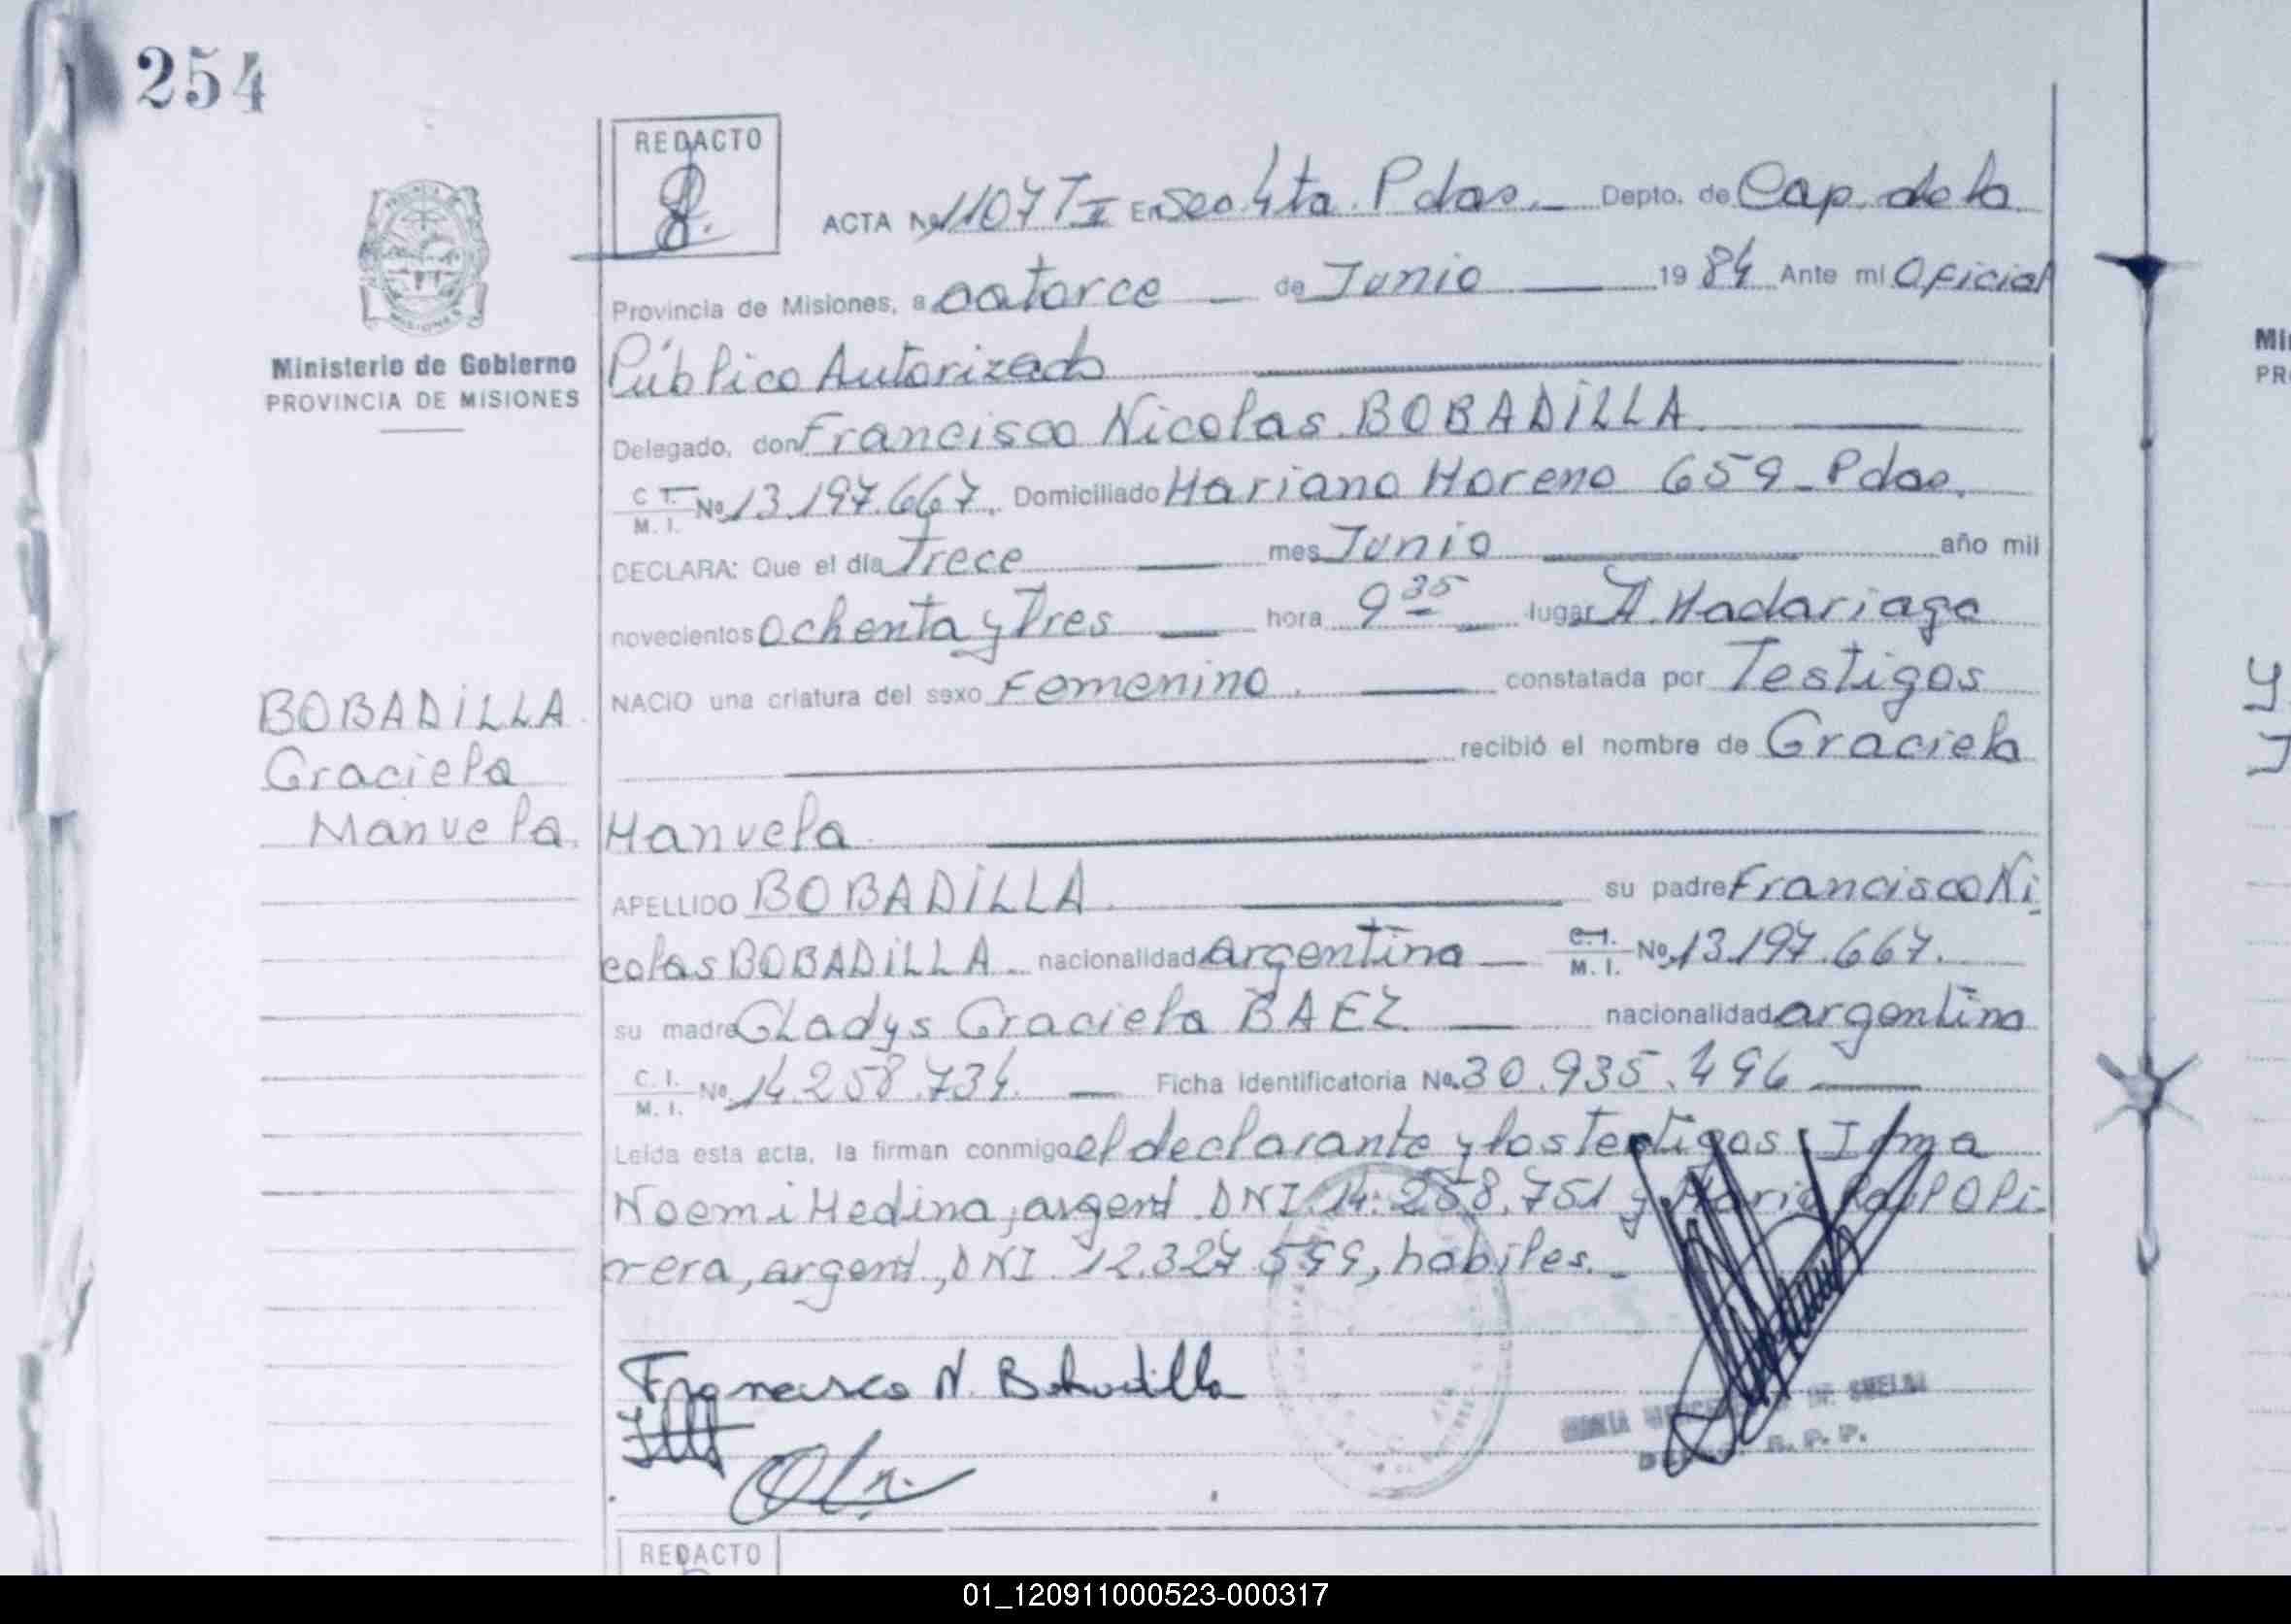 254
REDACTO
ACTA No 1107 T II En Sec 4ta. Pdas. Depto. de Cap. de la
Provincia de Misiones, a catorce de Junio 1984 Ante mi Oficial
Ministerio de Gobierno
PROVINCIA DE MISIONES
Público Autorizado
Delegado, don Francisco Nicolas BOBADILLA
C. I. M. I. No 13.197.667. Domiciliado Mariano Moreno 659 - Pdas.
DECLARA: Que el día Trece mes Junio año mil
novecientos ochenta y Tres hora 9 35 lugar H. Madariaga
NACIO una criatura del sexo Femenino. constatada por Testigos
recibió el nombre de Graciela
BOBADILLA
Graciela
Manuela.
Manuela
APELLIDO BOBADILLA su padre Francisco Ni
colas BOBADILLA nacionalidad argentina C. I. M. I. No 13.197.667.
su madre Gladys Graciela BAEZ nacionalidad argentina
C. I. M. I. No 14.258.734. Ficha identificatoria No. 30.935.496
Leída esta acta, la firman conmigo el declarante y los testigos, Irma
Noemi Medina, argent. DNI. 14.258.751 y Mario Raul Oli
rrera, argent., DNI. 12.327.599, habiles.
Francisco N. Bobadilla
REDACTO
01_120911000523-000317